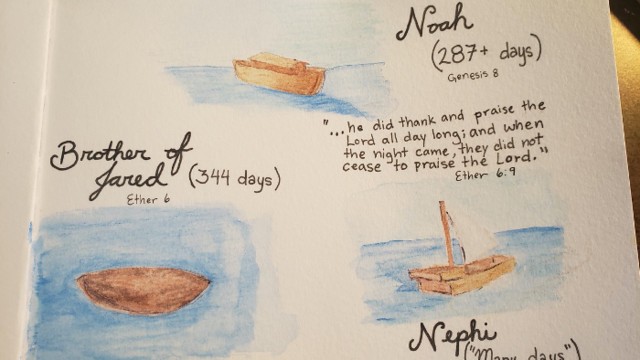 Noah
(287+ days)
Genesis 8
"...he did thank and praise the
Lord all day long; and when
the night came, they did not
cease to praise the Lord."
Ether 6:9
Brother of
Jared (344 days)
Ether 6
Nephi
("Many days")